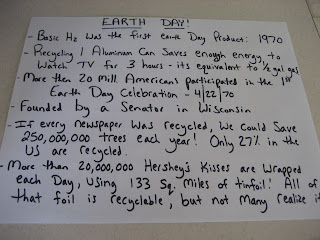 EARTH DAY!
- Basic H2 was the first earth Day Product: 1970
- Recycling 1 Aluminum Can Saves enough energy to
Watch TV for 3 hours - its equivalent to 1/2 gal gas
- More then 20 Mill Americans participated in the 1st
Earth Day Celebration - 4/22/70
- Founded by a Senator in Wisconsin
- If every newspaper was recycled, we could Save
250,000,000 trees each year! Only 27% in the
US are recycled.
- More than 20,000,000 Hershey's Kisses are wrapped
each Day, using 133 Sq. Miles of tinfoil! All of
that foil is recyclable, but not many realize it